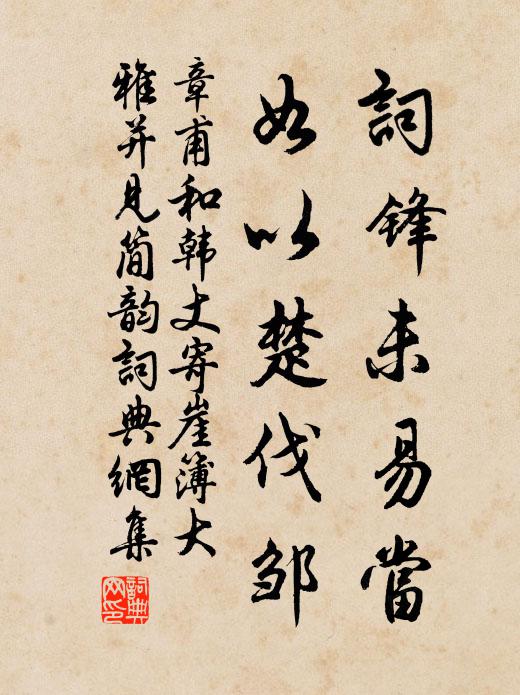 詞鋒未易當
如以楚伐邹
章甫和韩丈寄崖簿大
雅并見简韵詞典網集
詞典網印